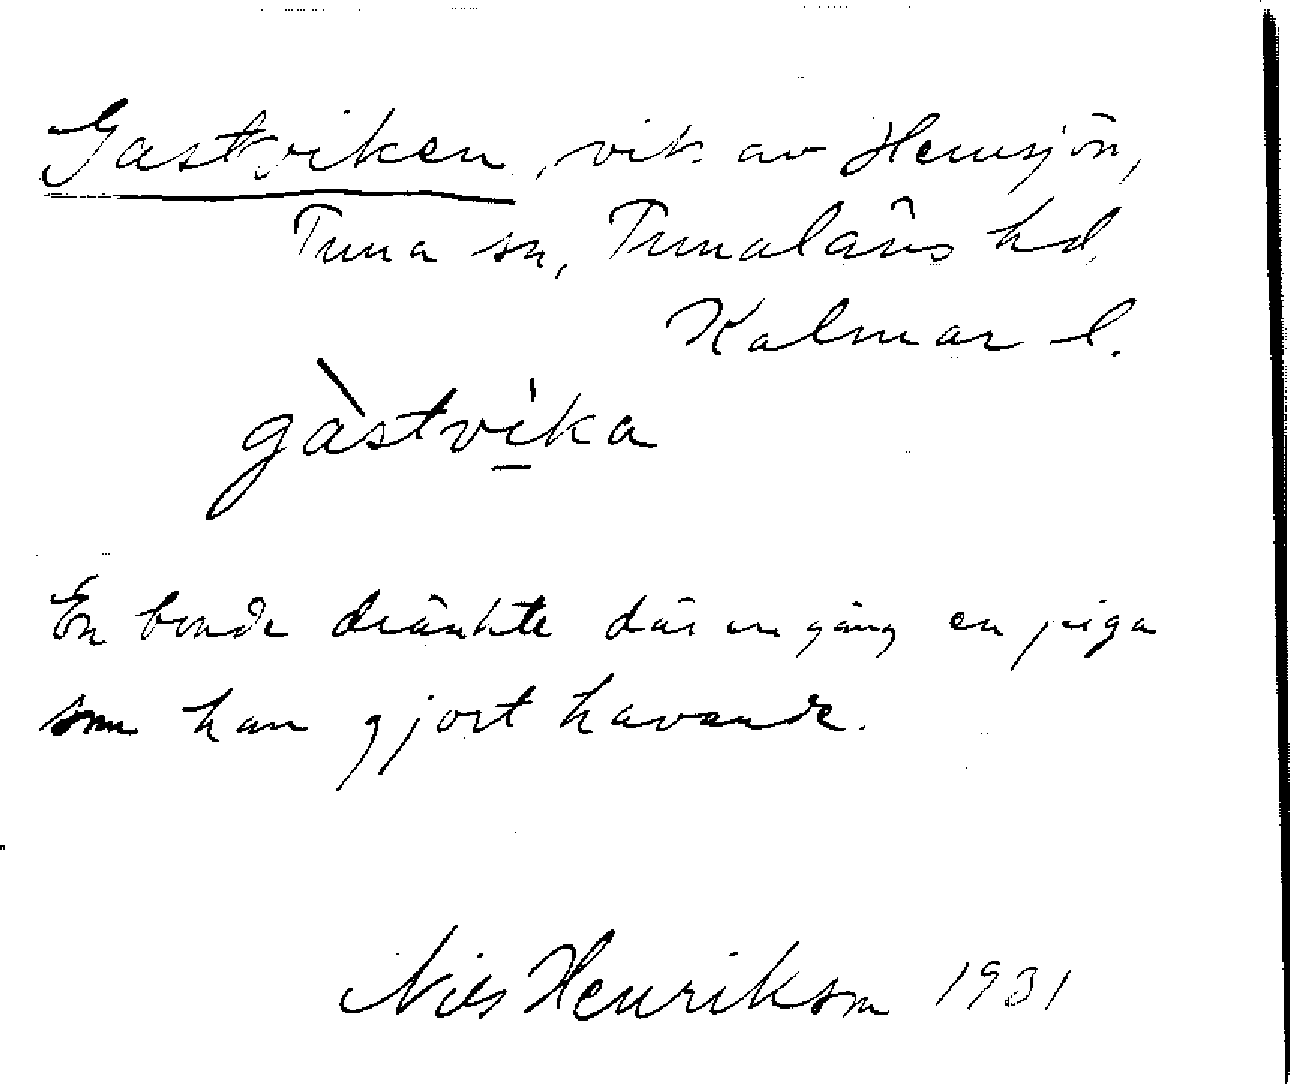 Gastviken, vik av Hemsjön,
Tuna sn, Tunaläns hd,
Kalmar l.
gàstvíka
En bonde dränkte där en gång en piga
som han gjort havande.
Nils Henrikson 1931